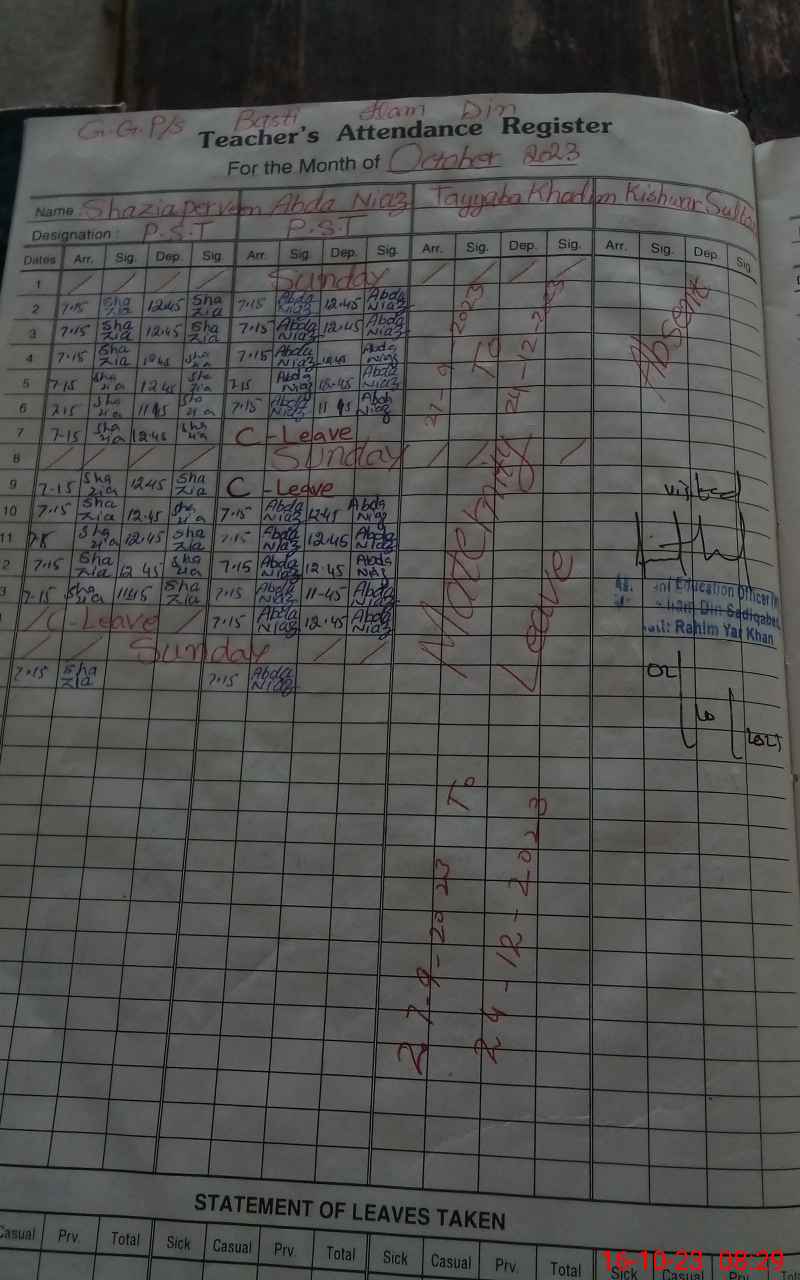 G.G.P/s Basti Ham Din
Teacher's Attendance Register
For the Month of October 2023
Name Shazia perveen Abda Niaz Tayyaba Khadim Kishwar Sultan
Designation : P.S.T P.S.T
Dates Arr. Sig. Dep. Sig. Arr. Sig. Dep. Sig. Arr. Sig. Dep. Sig. Arr. Sig. Dep. Sig.
1 / / / / Sunday / / / /
2 7.15 Shazia 12.45 Shazia 7.15 Abda Niaz 12.45 Abda Niaz
3 7.15 Shazia 12.45 Shazia 7.15 Abda Niaz 12.45 Abda Niaz
4 7.15 Shazia 12.45 Shazia 7.15 Abda Niaz 12.45 Abda Niaz
5 7.15 Shazia 12.45 Shazia 7.15 Abda Niaz 12.45 Abda Niaz
6 7.15 Shazia 11.45 Shazia 7.15 Abda Niaz 11.45 Abda Niaz
7 7.15 Shazia 12.45 Shazia C-Leave
8 / / / / Sunday / / / /
9 7.15 Shazia 12.45 Shazia C-Leave
10 7.15 Shazia 12.45 Shazia 7.15 Abda Niaz 12.45 Abda Niaz
11 Shazia 12.45 Shazia 7.15 Abda Niaz 12.45 Abda Niaz
2 7.15 Shazia 12.45 Shazia 7.15 Abda Niaz 12.45 Abda Niaz
3 7.15 Shazia 11.45 Shazia 7.15 Abda Niaz 11.45 Abda Niaz
/ C-Leave / 7.15 Abda Niaz 12.45 Abda Niaz
/ / Sunday / /
7.15 Shazia 7.15 Abda Niaz
2023 To 24-12-2023
Maternity Leave
27-9-2023 To
24-12-2023
Absent
visited
Education Officer
Ham Din Sadiqabad
Rahim Yar Khan
02
10
STATEMENT OF LEAVES TAKEN
Casual Prv. Total Sick Casual Prv. Total Sick Casual Prv. Total Sick Casual Prv. Total
16-10-23 08:29